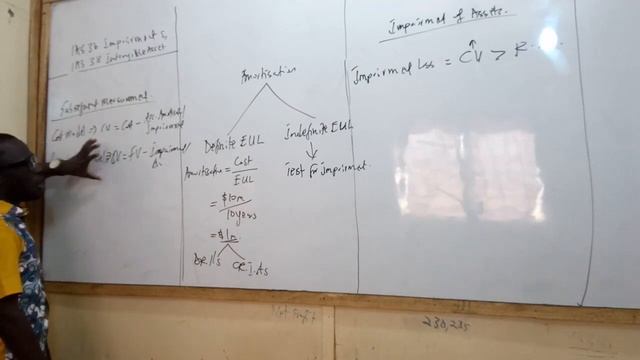 IAS 36 Impairment &
IAS 38 Intangible Asset
Subsequent measurement
Cost model → CV = Cost -
Impairment
= FV - Impairment
Amortisation
Definite EUL
Indefinite EUL
Amortisation = Cost
EUL
Test for impairment
= $10m
10 years
= $1m
DR. P/S
CR. I.As
Impairment of Assets.
Impairment Loss = CV > R.....
230,235